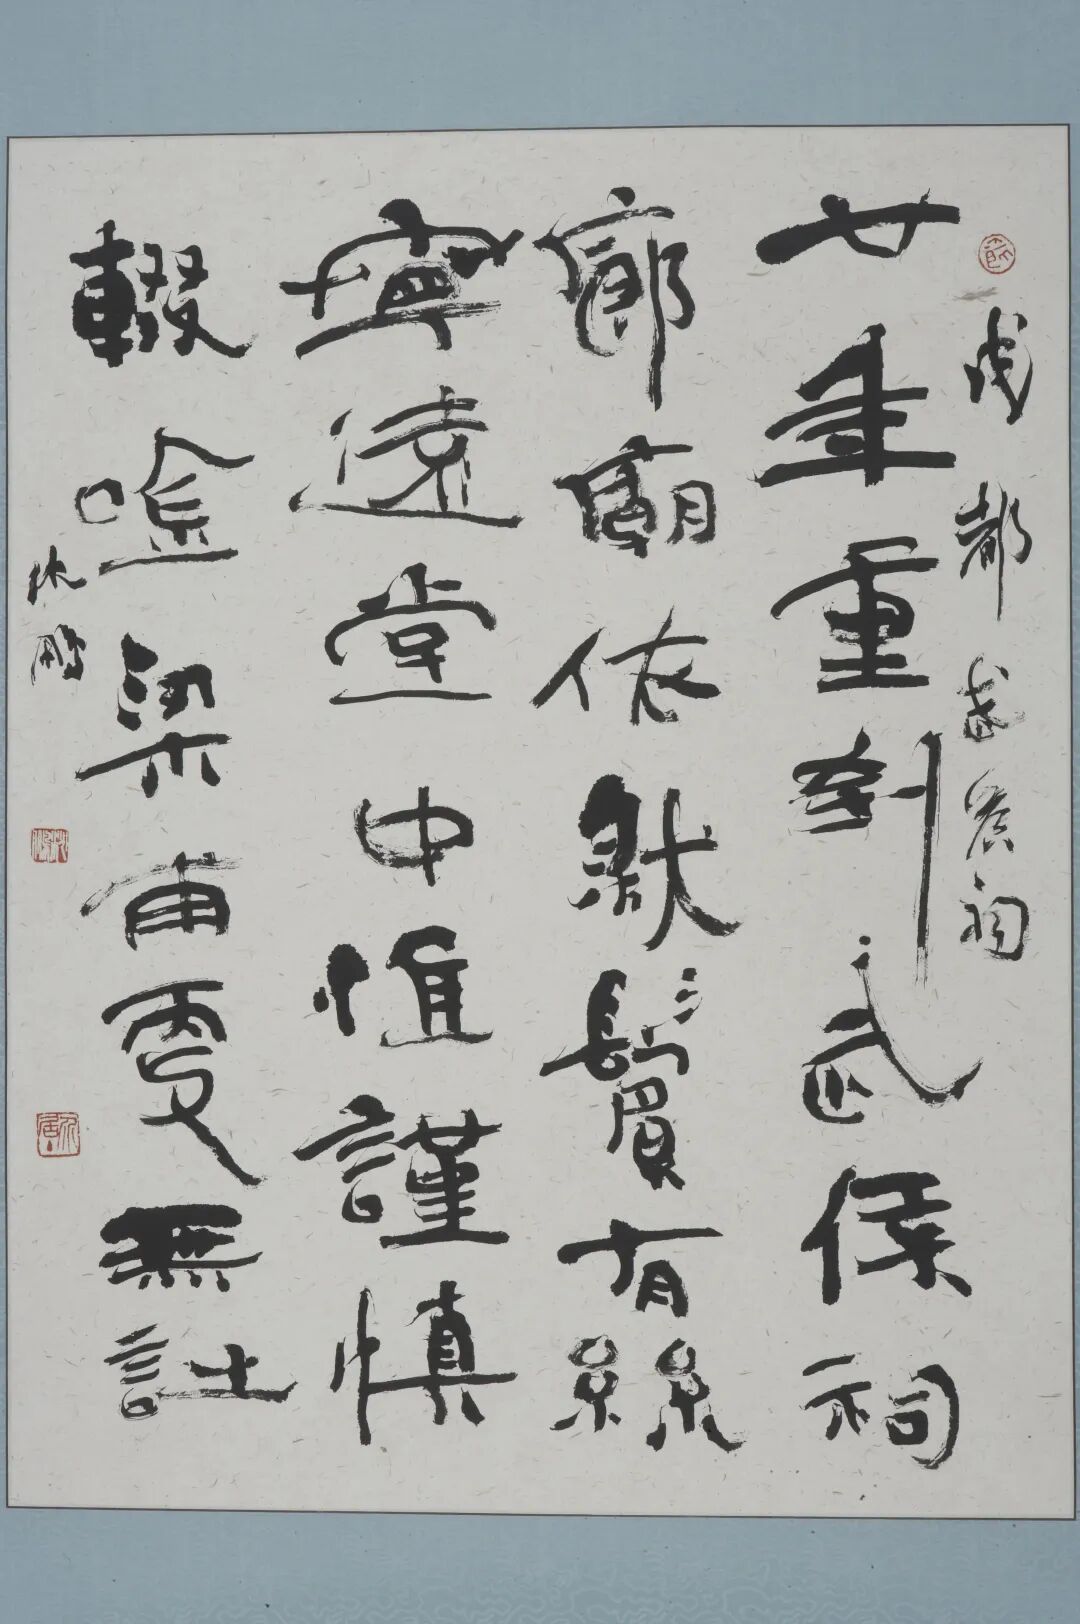 成都武侯祠
廿年重到武侯祠
廊廟依然鬢有絲
寧遠堂中惟謹慎
輟唫梁甫更無詩
沈鵬